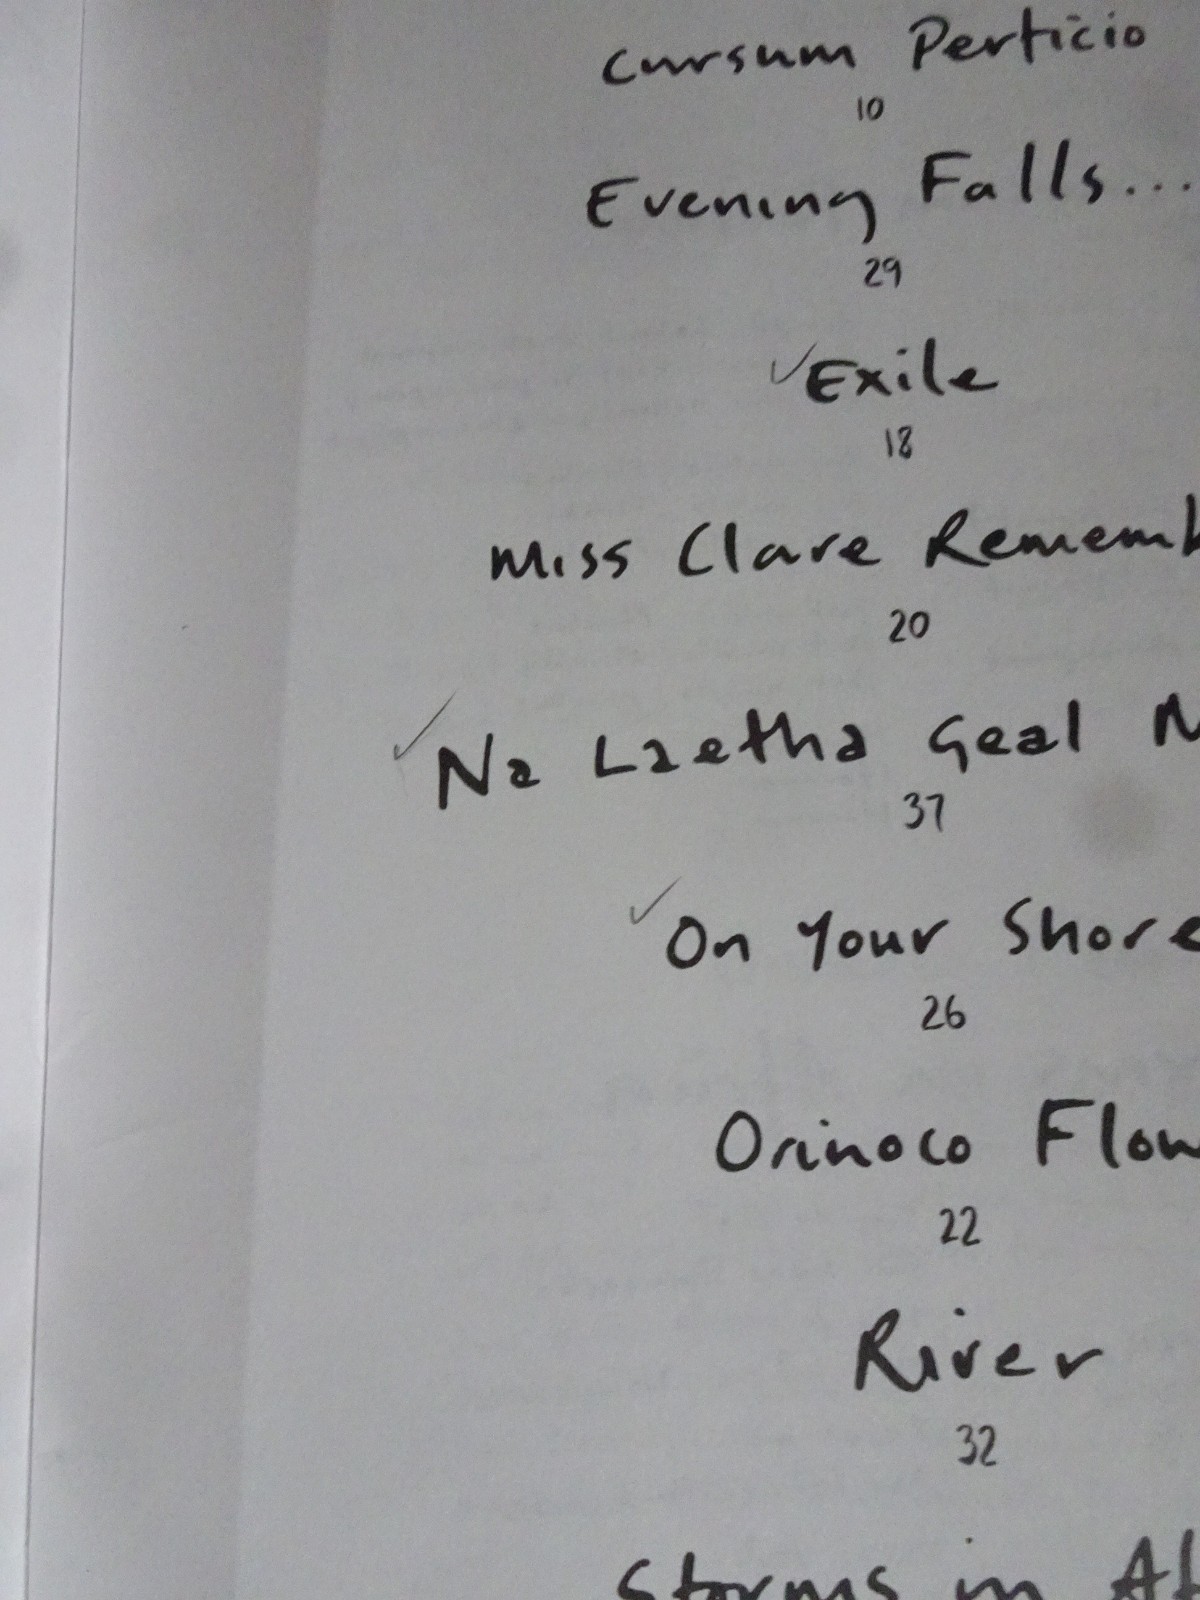 Cursum Perticio
10
Evening Falls...
29
✓Exile
18
Miss Clare Rememb
20
✓Na Laetha Geal M
37
✓On Your Shore
26
Orinoco Flow
22
River
32
Storms in Af